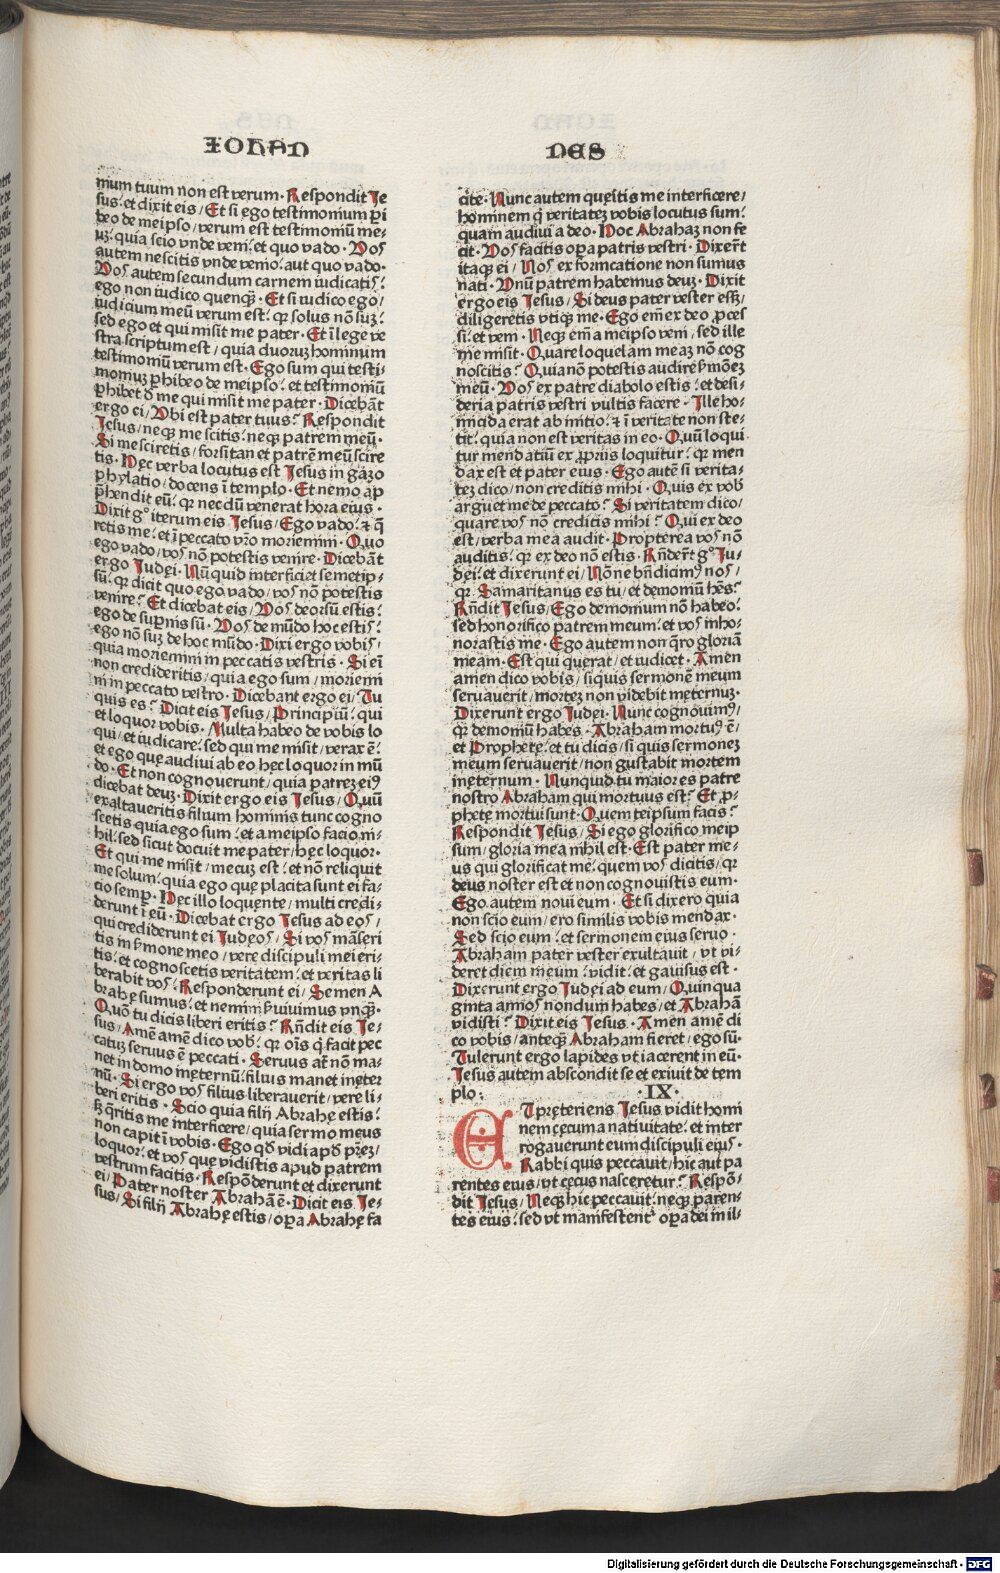 IOHAN
NES
mum tuum non est verum. Respondit Je
sus: et dixit eis / Et si ego testimonium ꝑi
beo de meipso / verum est testimonium me-
uꝫ: quia scio vnde veni: et quo vado. Vos
autem nescitis vnde venio: aut quo vado.
Vos autem secundum carnem iudicatis:
ego non iudico quenqꝫ. Et si iudico ego /
iudicium meū verum est: qꝛ solus nō suꝫ:
sed ego et qui misit me pater. Et ī lege ve
stra scriptum est / quia duoruꝫ hominum
testimoniū verum est. Ego sum qui testi-
moniuꝫ ꝑhibeo de meipso: et testimoniū
ꝑhibet đ me qui misit me pater. Dicebāt
ergo ei / Vbi est pater tuus? Respondit
Jesus / neqꝫ me scitis: neqꝫ patrem meū.
Si me sciretis / forsitan et patrē meū scire
tis. Hęc verba locutus est Jesus in gazo
phylatio / docens ī templo. Et nemo apꝰ
p̄hendit eū: qꝛ nec dū venerat hora eius.
Dixit gº iterum eis Jesus / Ego vado: ⁊ q̄
retis me: et ī peccato vr̄o moriemini. Quo
ego vado / vos nō potestis venire. Dicebāt
ergo Judęi. Nū quid interficiet semetip-
sū: qꝛ dicit quo ego vado / vos nō potestis
venire? Et dicebat eis / Vos deorsū estis:
ego de suꝑnis sū. Vos de mūdo hoc estis:
ego nō suꝫ de hoc mūdo. Dixi ergo vobis /
quia moriemini in peccatis vestris. Si eī
non credideritis / quia ego sum / moriemi
ni in peccato vestro. Dicebant ergo ei / Tu
quis es? Dicit eis Jesus / Principiū: qui
et loquor vobis. Multa habeo de vobis lo
qui / et iudicare: sed qui me misit / verax ē:
et ego quę audiui ab eo hęc loquor in mū
do. Et non cognouerunt / quia patreꝫ eiꝰ
dicebat deuꝫ. Dixit ergo eis Jesus / Quū
exaltaueritis filium hominis tunc cogno
scetis quia ego sum: et a meipso facio ni-
hil: sed sicut docuit me pater / hęc loquor.
Et qui me misit / mecuꝫ est: et nō reliquit
me solum: quia ego quę placita sunt ei fa-
cio semꝑ. Hęc illo loquente / multi credi-
derunt ī eū. Dicebat ergo Jesus ad eos /
qui crediderunt ei Judęos / Si vos māseri
tis in s̄mone meo / vere discipuli mei eri-
tis: et cognoscetis veritatem: et veritas li
berabit vos. Responderunt ei / Semen A
brahę sumus: et nemini s̄uiuimus vnqꝫ.
Quō tu dicis liberi eritis? Rn̄dit eis Je-
sus / Amē amē dico vob: qꝛ oīs q̄ facit pec
catuꝫ seruus ē peccati. Seruus at̄ nō ma-
net in domo inęternū: filius manet inęter
nū. Si ergo vos filius liberauerit / vere li-
beri eritis. Scio quia filij Abrahę estis:
sꝫ q̄ritis me interficere / quia sermo meus
non capit ī vobis. Ego qđ vidi apđ pr̄eꝫ /
loquor: et vos quę vidistis apud patrem
vestrum facitis. Respōderunt et dixerunt
ei / Pater noster Abrahā ē. Dicit eis Je-
sus / Si filij Abrahę estis / oꝑa Abrahę fa
cite. Nunc autem quęritis me interficere /
hominem q̄ veritateꝫ vobis locutus sum:
quam audiui a deo. Hoc Abrahaꝫ non fe
cit. Vos facitis oꝑa patris vestri. Dixer̄t
itaqꝫ ei / Nos ex fornicatione non sumus
nati. Vnū patrem habemus deuꝫ. Dixit
ergo eis Jesus / Si deus pater vester esꝫ /
diligeretis vtiqꝫ me. Ego em̄ ex deo ꝓces
si: et veni. Neqꝫ em̄ a meipso veni / sed ille
me misit. Quare loquelam meaꝫ nō cog
noscitis? Quia nō potestis audire s̄moēꝫ
meū. Vos ex patre diabolo estis: et desi-
deria patris vestri vultis facere. Ille ho-
micida erat ab initio: ⁊ ī veritate non ste-
tit: quia non est veritas in eo. Quū loqui
tur mendatiū ex ꝓprijs loquitur: qꝛ men
dax est et pater eius. Ego autē si verita-
teꝫ dico / non creditis mihi. Quis ex vob
arguet me de peccato? Si veritatem dico /
quare vos nō creditis mihi? Qui ex deo
est / verba mea audit. Propterea vos nō
auditis: qꝛ ex deo nō estis. Rn̄der̄t gº Ju-
dęi: et dixerunt ei / Nōne bn̄ dicimꝰ nos /
qꝛ Samaritanus es tu / et demoniū hēs?
Rn̄dit Jesus / Ego demonium nō habeo:
sed honorifico patrem meum: et vos inho-
norastis me. Ego autem non q̄ro gloriā
meam. Est qui querat / et iudicet. Amen
amen dico vobis / si quis sermonē meum
seruauerit / morteꝫ non videbit inęternuꝫ.
Dixerunt ergo Judęi. Nunc cognouimꝰ /
qꝛ demoniū habes. Abraham mortuꝰ ē /
et Prophetę: et tu dicis / si quis sermoneꝫ
meum seruauerit / non gustabit mortem
inęternum. Nunquid tu maior es patre
nostro Abraham qui mortuus est? Et ꝓ-
phetę mortui sunt. Quem teipsum facis?
Respondit Jesus / Si ego glorifico meip
sum / gloria mea nihil est. Est pater me-
us qui glorificat me: quem vos dicitis / qꝛ
deus noster est et non cognouistis eum.
Ego autem noui eum. Et si dixero quia
non scio eum / ero similis vobis mendax.
Sed scio eum: et sermonem eius seruo.
Abraham pater vester exultauit / vt vi-
deret diem meum: vidit: et gauisus est.
Dixerunt ergo Judęi ad eum / Quinqua
ginta annos nondum habes / et Abrahā
vidisti? Dixit eis Jesus. Amen amē di
co vobis / anteqꝫ Abraham fieret / ego sū.
Tulerunt ergo lapides vt iacerent in eū.
Jesus autem abscondit se et exiuit de tem
plo:
·IX·
ET pręteriens Jesus vidit homi
nem cęcum a natiuitate: et inter
rogauerunt eum discipuli eius.
Rabbi quis peccauit / hic aut pa
rentes eius / vt cęcus nasceretur? Respō-
dit Jesus / Neqꝫ hic peccauit: neqꝫ paren-
tes eius: sed vt manifestentꝰ oꝑa dei in il-
Digitalisierung gefördert durch die Deutsche Forschungsgemeinschaft - DFG